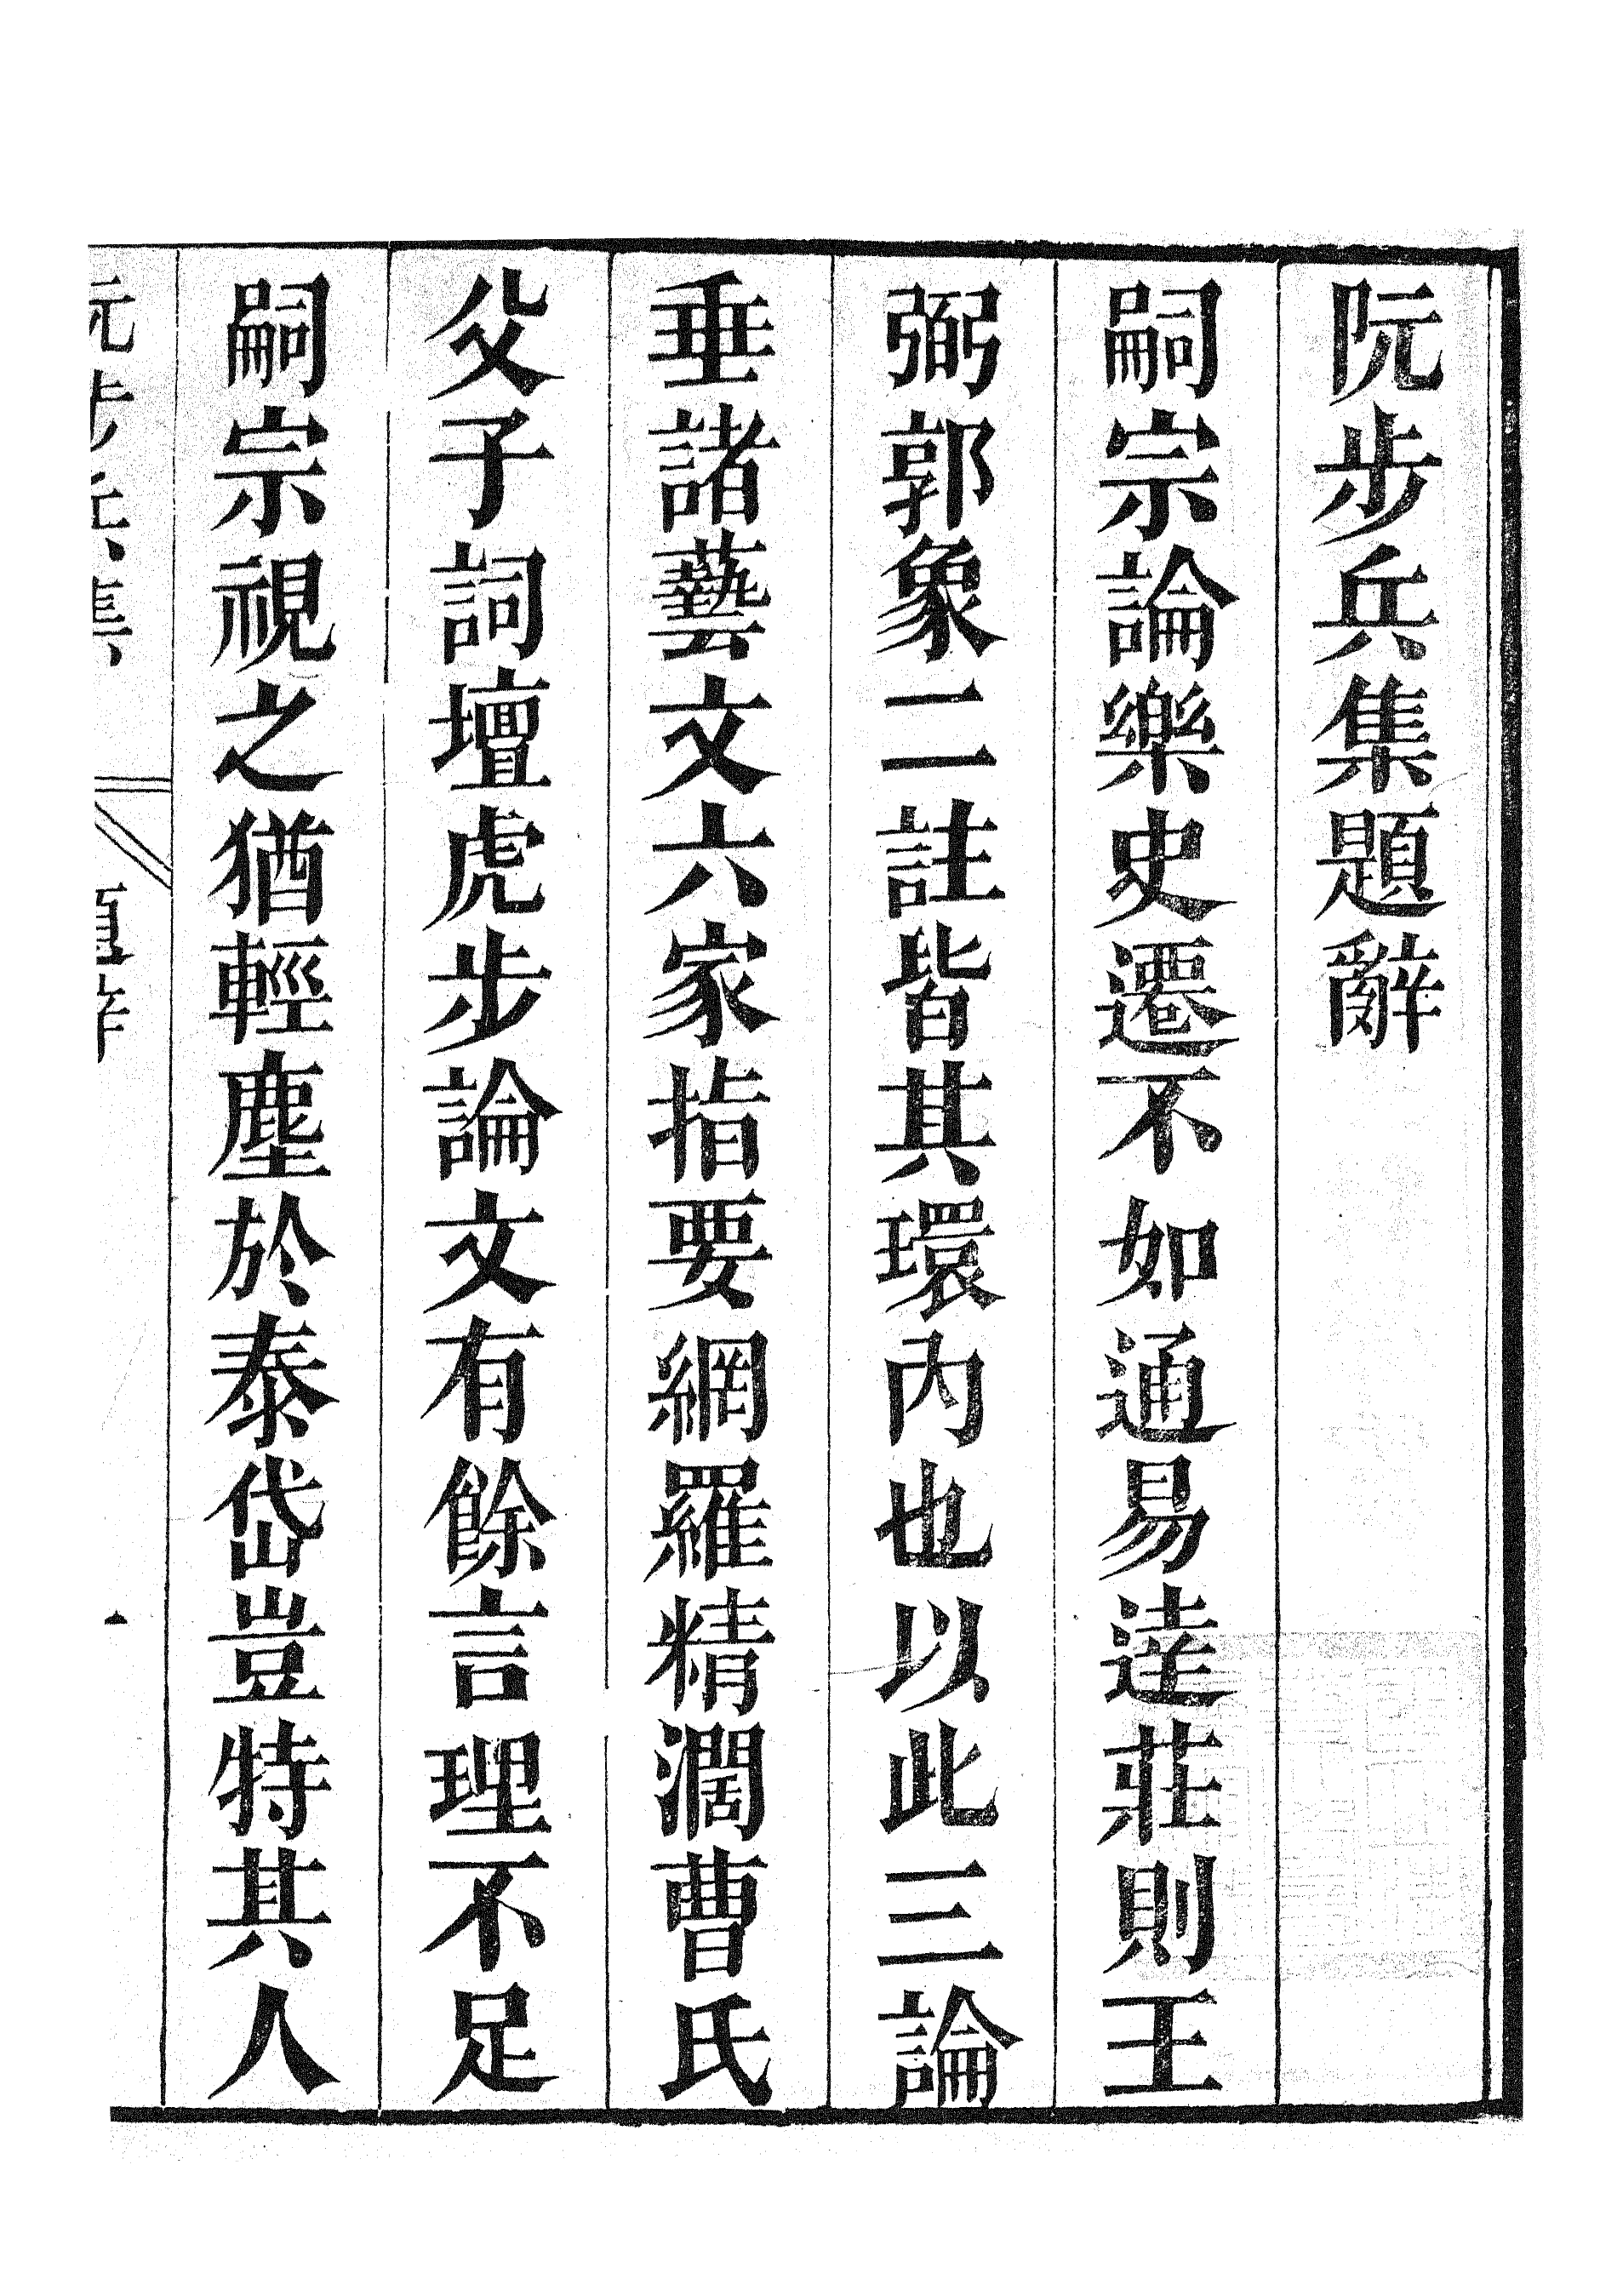 阮步兵集題辭
嗣宗論樂史遷不如通易逹莊則王
弼郭象二註皆其環內也以此三論
垂諸藝文六家指要網羅精濶曹氏
父子詞壇虎步論文有餘言理不足
嗣宗視之猶輕塵於泰岱豈特其人
阮步兵集 題辭 一